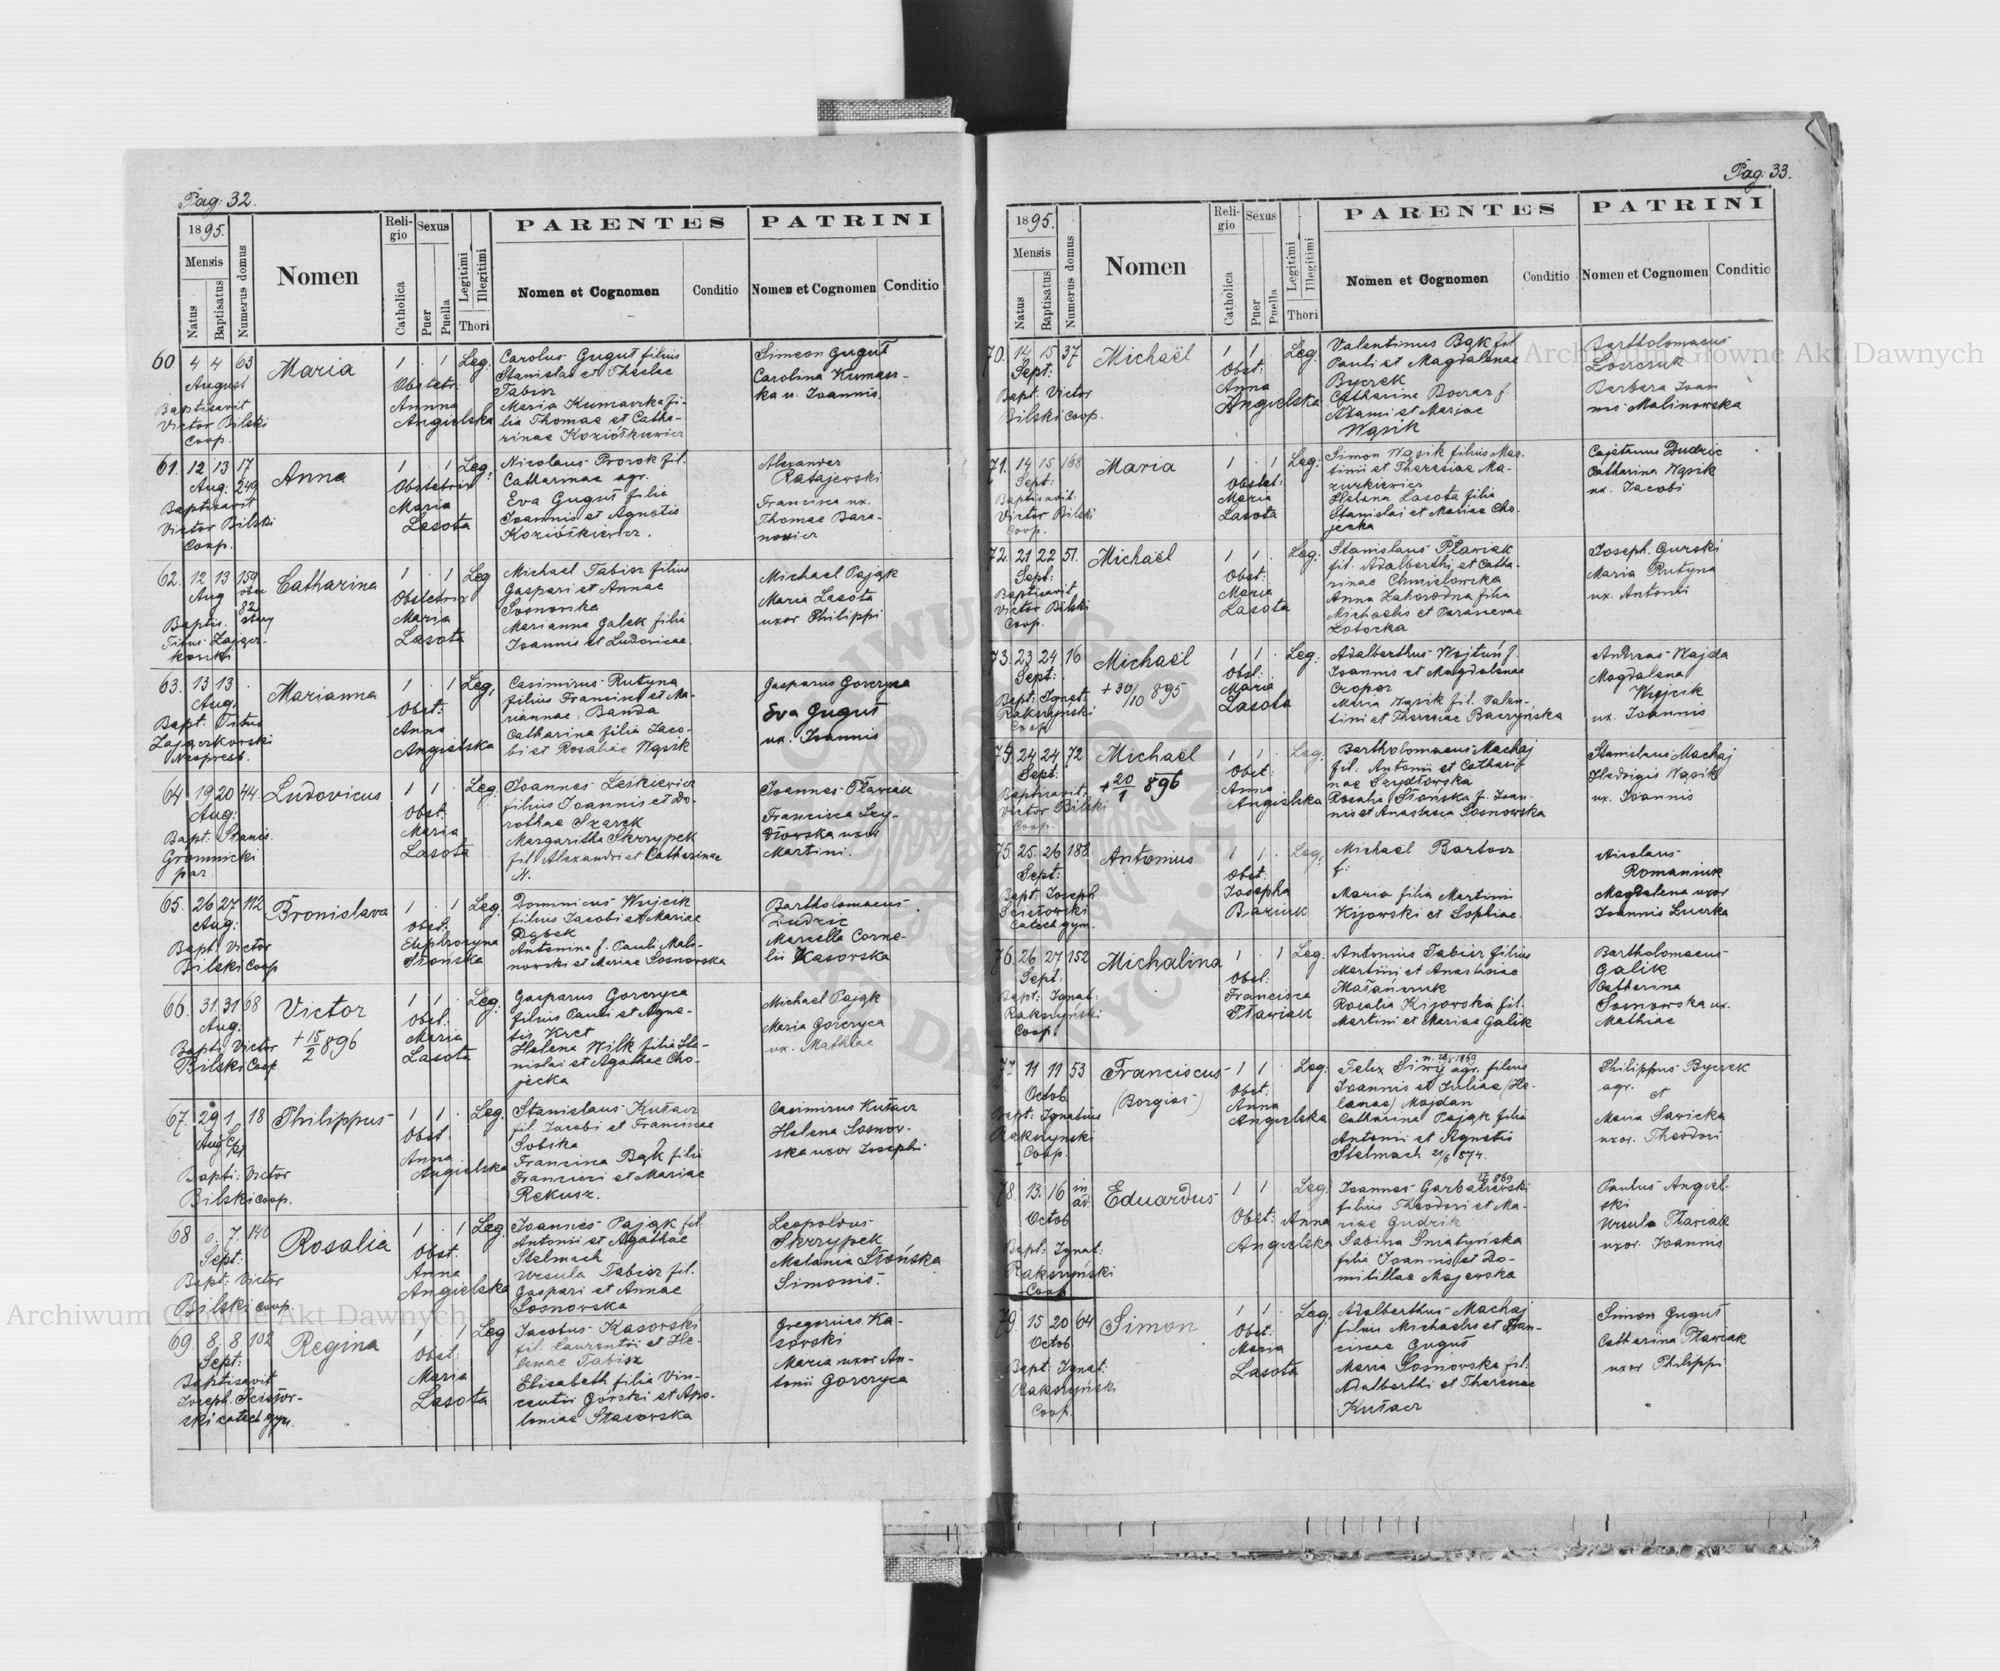 Pag: 32.
1895.
Mensis
Natus
Baptisatus
Numerus domus
Nomen
Religio
Catholica
Sexus
Puer
Puella
Legitimi
Illegitimi
Thori
PARENTES
Nomen et Cognomen
Conditio
PATRINI
Nomen et Cognomen
Conditio
60 4 4 63 Maria 1 . 1 Leg:
August
Baptisavit
Victor Bilski
Coop.
Obstetr:
Anna
Angielska
Carolus Guguł filius
Stanislai et Theclae
Tabisz
Maria Kumaszka fi-
lia Thomae et Catha-
rinae Koziółkiewicz
Simeon Guguł
Carolina Kumasz-
ka u. Joannis.
61. 12 13 17 Anna 1 . 1 Leg:
Aug: 249
Baptisavit
Victor Bilski
Coop.
Obstetrix
Maria
Lasota
Nicolaus Prorok fil.
Catharinae agr.
Eva Guguł filia
Joannis et Agnetis
Koziółkiewicz.
Alexander
Ratajewski
Francisca ux.
Thomae Bara-
nowicz
62. 12 13 159 Catharina 1 . 1 Leg
Aug
82
Baptis.
Titus Zającz-
kowski
Obstetrix
Maria
Lasota
Michael Tabisz filius
Gaspari et Annae
Sosnowska
Marianna Galek filia
Joannis et Ludovicae
Michael Pająk
Maria Lasota
uxor Philippi
63. 13 13 Marianna 1 . 1 Leg,
Aug.
Bapt. Titus
Zajączkowski
Neoprest.
Obst:
Anna
Angielska
Casimirus Rutyna
filius Francisci et Ma-
riannae Banda
Catharina filia Jaco-
bi et Rosaliae Wąsik
Gasparus Gorczyca
Eva Guguł
ux. Joannis
64 19 20 44 Ludovicus 1 1 . Leg:
Aug:
Bapt: Stanis.
Gromnicki
par.
Obst.
Maria
Lasota
Joannes Leśkiewicz
filius Joannis et Do-
rothae Szarek
Margaritha Skrzypek
fil. Alexandri et Catharinae
N.
Joannes Pławiak
Francisca Szy-
dłowska uxor
Martini.
65. 26 27 112 Bronislava 1 . 1 Leg:
Aug:
Bapt. Victor
Bilski Coop
Obst:
Euphrozyna
Słońska
Dominicus Wujcik
filius Jacobi et Mariae
Dąbek
Antonina f. Pauli Mali-
nowski et Mariae Sosnowska
Bartholomaeus
Dudzic
Marcella Corne-
lii Kasowska
66. 31 31 68 Victor 1 1 . Leg:
Aug.
+ 15/2 896
Bapt: Victor
Bilski Coop
Obst.
Maria
Lasota
Gasparus Gorczyca
filius Pauli et Agne-
tis Kret
Helena Wilk filia Sta-
nislai et Agathae Cho-
jecka
Michael Pająk
Maria Gorczyca
ux. Mathiae
67. 29 1. 18 Philippus 1 1 . Leg.
Aug
Bapti: Victor
Bilski coop.
Obst.
Anna
Angielska
Stanislaus Kułacz
fil. Jacobi et Franciscae
Sobska
Francisca Bąk filia
Francisci et Mariae
Rekusz.
Casimirus Kułacz
Helena Sosnow-
ska uxor Josephi
68 6. 7. 140 Rosalia 1 . 1 Leg
Sept:
Bapt: Victor
Bilski coop.
Obst.
Anna
Angielska
Joannes Pająk fil.
Antonii et Agathae
Stelmach
Ursula Tabisz fil.
Gaspari et Annae
Sosnowska
Leopoldus
Skrzypek
Melania Słońska
Simonis.
69. 8. 8. 102 Regina 1 . 1 Leg
Sept:
Baptisavit
Joseph. Ścisłow-
ski catech gym.
Obst:
Maria
Lasota
Jacobus Kasowski
fil. Laurentii et He-
lenae Tabisz
Elisabeth filia Vin-
centii Górski et Apo-
loniae Stasowska
Gregorius Ka-
sowski
Maria uxor An-
tonii Gorczyca
Pag: 33.
1895.
Mensis
Natus
Baptisatus
Numerus domus
Nomen
Religio
Catholica
Sexus
Puer
Puella
Legitimi
Illegitimi
Thori
PARENTES
Nomen et Cognomen
Conditio
PATRINI
Nomen et Cognomen
Conditio
70. 14 15 37 Michaël 1 1 . Leg.
Sept:
Bapt: Victor
Bilski coop.
Obst:
Anna
Angielska
Valentinus Bąk fil.
Pauli et Magdalenae
Byczek
Catharina f.
Adami et Mariae
Wąsik
Bartholomaeus
Barbara Joan
nis Malinowska
71. 14 15 168 Maria 1 . 1 Leg:
Sept:
Baptisavit.
Victor Bilski
Coop.
Obstet:
Maria
Lasota
Simon Wąsik filius Mar-
tinii et Theresiae Ma-
zurkiewicz
Helena Lasota filia
Stanislai et Mariae Cho-
jecka
Cajetanus Dudzic
Catharina Wąsik
ux. Jacobi
72. 21 22 51. Michaël 1 1 . Leg:
Sept:
Baptisavit
Victor Bilski
Coop.
Obst:
Maria
Lasota
Stanislaus Pławiak
fil. Adalberthi et Catha-
rinae Chmielowska
Anna Zahorodna filia
Michaelis et Parascevae
Łotocka
Joseph. Gurski
Maria Rutyna
ux. Antonii
73. 23 24 16 Michaël 1 1 . Leg:
Sept:
+ 30/10 895
Bapt: Ignat.
Rakszyński
Coop.
Obst.
Maria
Lasota
Adalberthus Wojtuń f.
Joannis et Magdalenae
Cropor
Maria Wąsik fil. Valen-
tini et Theresiae Baczyńska
Andreas Wajda
Magdalena
Wojcik
ux. Joannis
74. 24 24 72 Michaël 1 1 . Leg:
Sept:
+ 20/1 896
Baptisavit:
Victor Bilski
Coop.
Obst:
Anna
Angielska
Bartholomaeus Machaj
fil. Antonii et Cathari-
nae Szydłowska
Rosalia Słońska f. Joan-
nis et Anastasia Sosnowska
Stanislaus Machaj
Hedvigis Wąsik
ux. Joannis
75. 25. 26 188. Antonius 1 1 . Leg:
Sept:
Bapt: Joseph
Ścisłowski
Catech gym.
Obst.
Josepha
Baziuk
Michaël Bartosz
f:
Maria filia Martini
Kijowski et Sophiae
Nicolaus
Romaniuk
Magdalena uxor
Joannis
76. 26 27 152 Michalina 1 . 1 Leg:
Sept.
Bapt: Ignat:
Rakszyński
Coop.
Obst.
Francisca
Pławiak
Antonius Tabisz filius
Martini et Anastasiae
Małańczuk
Rosalia Kijowska fil.
Martini et Mariae Galik
Bartholomaeus
Galik
Catharina
Sosnowska ux.
Mathiae
77 11 11 53 Franciscus 1 1 Leg:
Octob
(Borgias)
Bapt: Ignatius
Rakszynski
Coop.
Obst.
Anna
Angielska
Felix Siwy agr. filius
Joannis et Juliae (He-
lenae) Majdan
Catharina Pająk filia
Antonii et Agnetis
Stelmach 21/6 874.
Philippus Byczek
agr.
et
Maria Sawicka
uxor. Theodori
78. 13. 16 in Eduardus 1 1 Leg:
Octob
Bapt: Ignat:
Rakszyński
Coop
Obst: Anna
Angielska
Joannes Garbaczewski
filius Theodori et Ma-
riae Gudzik
Sabina Śniatyńska
filia Joannis et Do-
mitillae Majewska
Paulus Angiel-
ski
Ursula Pławiak
uxor. Joannis
79. 15 20 64 Simon 1 1 . Leg
Octob
Bapt: Ignat:
Rakszyński
Coop.
Obst.
Maria
Lasota
Adalberthus Machaj
filius Michaelis et Fran-
ciscae Guguł
Maria Sosnowska fil.
Adalberthi et Theresae
Kułacz
Simon Guguł
Catharina Pławiak
uxor Philippi
Archiwum Główne Akt Dawnych
Archiwum Główne Akt Dawnych